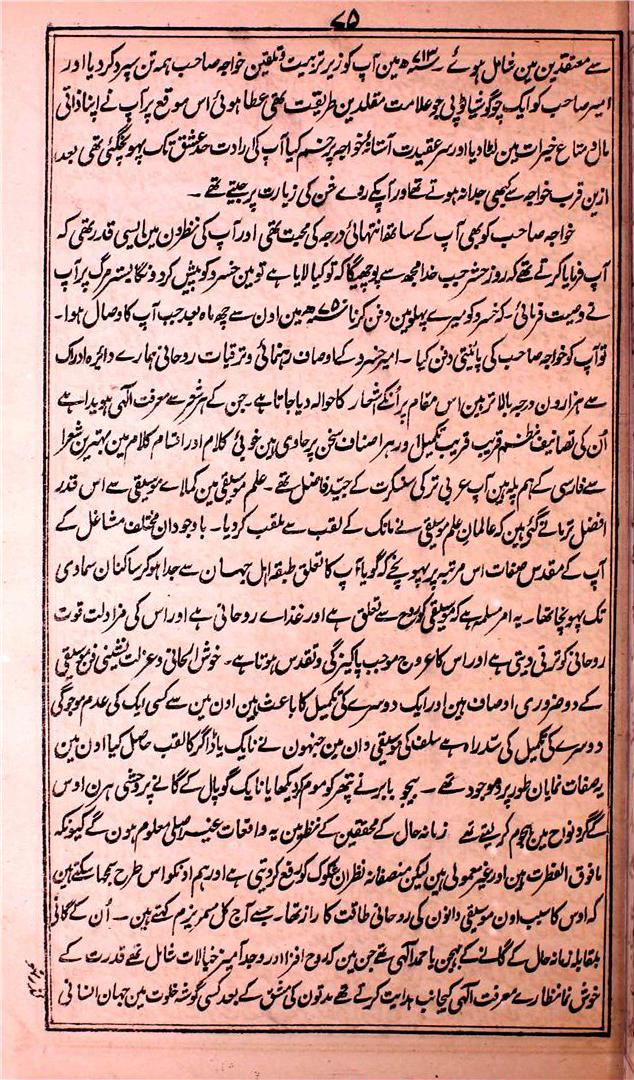 ۷۵
سے معتقدین مین شامل ہوئے ۔ ۷۱۳ھ مین آپ کو زیر تربیت و تلقین خواجہ صاحب ہمہ تن سپرد کر دیا اور
امیر صاحب کو ایک چوگوشیا ٹوپی جو علامت مقلدین طریقت تھی عطا ہوئی اس موقع پر آپ نے اپنا ذاتی
مال و متاع خیرات مین لٹا دیا اور سر عقیدت آستانۂ خواجہ پر خم کیا آپ کی ارادت حد عشق تک پہونچ گئی تھی بعد
ازین قرب خواجہ سے کبھی جدا نہ ہوتے تھے اور آپکے روے کی زیارت پر جیتے تھے ۔
خواجہ صاحب کو بھی آپ کے ساتھ انتہائی درجہ کی محبت تھی اور آپ کی نظرون مین ایسی قدر تھی کہ
آپ فرمایا کرتے تھے کہ روز حشر جب خدا مجھ سے پوچھیگا کہ تو کیا لایا ہے تو مین خسرو کو پیش کر دونگا بستر مرگ پر آپ
نے وصیت فرمائی ۔ کہ خسرو کو میرے پہلو مین دفن کرنا مین اون سے چھ ماہ بعد جب آپ کا وصال ہوا ۔
تو آپ کو خواجہ صاحب کی پائینتی دفن کیا ۔ امیر خسرو کے اوصاف رہنمائی و ترقیات روحانی ہمارے دائرہ ادراک
سے ہزارون درجہ بالاتر ہین اس مقام پر اُنکے اشعار کا حوالہ دیا جاتا ہے ۔ جن کے ہر شعر سے معرفت الٰہی ہویدا ہے
اُن کی تصانیف نظم قریب قریب تکمیل اور ہر اصناف سخن پر حاوی ہین خوبی کلام اور اقسام کلام مین بہترین شعرا
سے فارسی کے ہم پلہ ہین آپ عربی ترکی سنسکرت کے جید فاضل تھے ۔ علم موسیقی مین کملاے موسیقی سے اس قدر
افضل تر مانے گئی ہین کہ عالمان علم موسیقی نے نائک کے لقب سے ملقب کر دیا ۔ باوجود ان مختلف مشاغل کے
آپ کے مقدس صفات اس مرتبہ پر پہونچے کہ گویا آپ کا تعلق طبقہ اہل جہان سے جدا ہو کر ساکنان سماوی
تک پہونچا تھا ۔ یہ امر مسلمہ ہے کہ موسیقی کو روح سے تعلق ہے اور غذاے روحانی ہے اور اس کی مزاولت قوت
روحانی کو ترقی دیتی ہے اور اس کا عروج موجب پاکیزگی و تقدس ہوتا ہے ۔ خوش الحانی و عزلت نشینی فن موسیقی
کے دو ضروری اوصاف ہین اور ایک دوسرے کی تکمیل کا باعث ہین اون مین سے کسی ایک کی عدم موجودگی
دوسرے کی تکمیل کی سد راہ ہے سلف کی موسیقی دان مین جنہون نے نایک یا ڈاگر کا لقب حاصل کیا اون مین
یہ صفات نمایان طور پر موجود تھے ۔ بیجو باہرنے پتھر کو موم کر دیکھایا نایک گوپال کے گانے پر وحشی ہرن اوس
کے گرد نواح مین ہجوم کر لیتے تھے زمانہ حال کے محققین کے نظر مین یہ واقعات غیر اصلی معلوم ہون گے کیونکہ
مافوق الفطرت ہین اور غیر معمولی ہین لیکن منصفانہ نظر ان شکوک کو رفع کر دیتی ہے اور ہم اونکو اس طرح سمجھا سکتے ہین
کہ اوس کا سبب اون موسیقی دانون کی روحانی طاقت کا راز تھا ۔ جسے آج کل مسمریزم کہتے ہین ۔ اُن کے گانی
بمقابلہ زمانہ حال کے گانے کے بھجن یا حمد الٰہی تھے جن مین کہ روح افزا اور وجد آمیز خیالات شامل تھے قدرت کے
خوش نما نظارے معرفت الٰہی کیجانب ہدایت کرتے تھے مدتون کی مشق کے بعد کسی گوشہ خلوت مین جہان انسانی